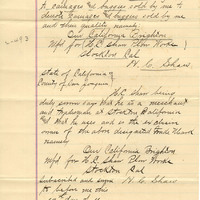 & carriages & buggies sold by me to
denote carriages & buggies sold by me
and their quality, namely
Our California Brighton
Mfd for H.C. Shaw Plow Works
Stockton Cal
H. C. Shaw
State of California
County of San Joaquin
H.C. Shaw being
duly sworn says that he is a merchant
and Tradesman at Stockton California
that he uses and is the exclusive
owner of the above designated Trade Mark
namely
Our California Brighton
Mfd for H.C. Shaw Plow Works
Stockton Cal
Subscribed and sworn H. C. Shaw
to before me this